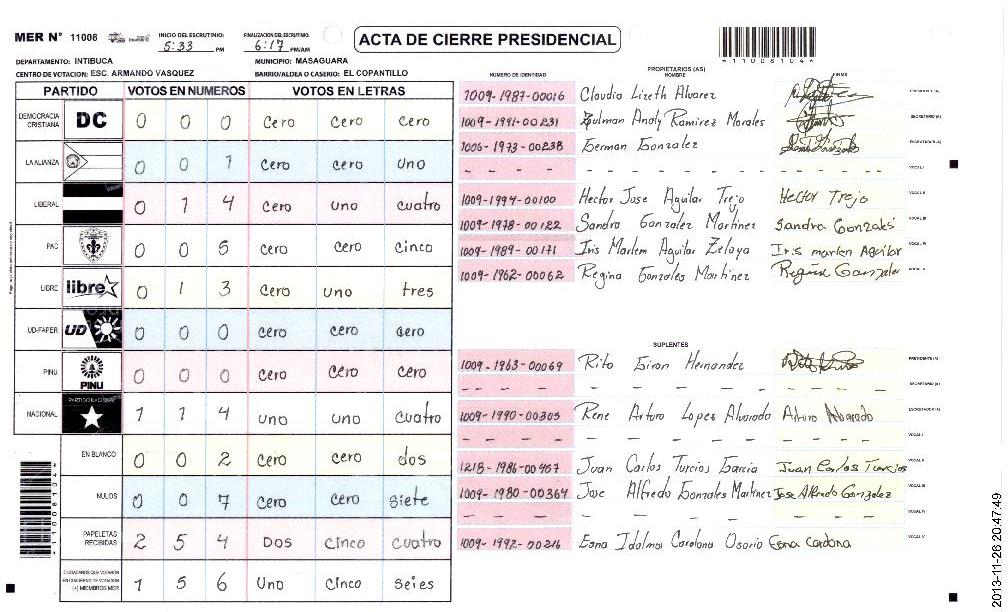 MER N° 11008
INICIO DEL ESCRUTINIO: 5:33 PM
FINALIZACION DEL ESCRUTINIO: 6:17 PM/AM
ACTA DE CIERRE PRESIDENCIAL
110081041
DEPARTAMENTO: INTIBUCA MUNICIPIO: MASAGUARA
CENTRO DE VOTACION: ESC. ARMANDO VASQUEZ BARRIO/ALDEA O CASERIO: EL COPANTILLO
PARTIDO VOTOS EN NUMEROS VOTOS EN LETRAS
DEMOCRACIA CRISTIANA DC 0 0 0 cero cero cero
LA ALIANZA 0 0 1 cero cero uno
LIBERAL 0 1 4 cero uno cuatro
PAC 0 0 5 cero cero cinco
LIBRE libre 0 1 3 cero uno tres
UD-FAPER UD 0 0 0 cero cero cero
PINU PINU 0 0 0 cero cero cero
NACIONAL PARTIDO NACIONAL 1 1 4 uno uno cuatro
EN BLANCO 0 0 2 cero cero dos
NULOS 0 0 7 cero cero siete
PAPELETAS RECIBIDAS 2 5 4 DOS cinco cuatro
CIUDADANOS QUE VOTARON EN CUADERNO DE VOTACION (+) MIEMBROS MER 1 5 6 Uno cinco seies
NUMERO DE IDENTIDAD PROPIETARIOS (AS) NOMBRE FIRMA
1009-1987-00016 Claudia Lizeth Alvarez PRESIDENTE (A)
1009-1991-00231 Zulman Analy Ramirez Morales SECRETARIO (A)
1006-1973-00238 German Gonzalez ESCRUTADOR (A)
- - - - - - - - - - - - - - VOCAL I
1009-1994-00100 Hector Jose Aguilar Trejo Hector Trejo VOCAL II
1009-1978-00122 Sandra Gonzalez Martinez Sandra Gonzales VOCAL III
1009-1989-00171 Iris Marlem Aguilar Zelaya Iris marlen Aguilar VOCAL IV
1009-1962-00062 Regina Gonzales Martinez Regina Gonzales VOCAL V
SUPLENTES
1009-1963-00069 Rito Giron Hernandez PRESIDENTE (A)
- - - - - - - - - - - - SECRETARIO (A)
1009-1990-00305 Rene Arturo Lopes Alvarado Arturo Alvarado ESCRUTADOR (A)
- - - - - - - - - - - - VOCAL I
1218-1986-00457 Juan Carlos Turcios Garcia Juan Carlos Turcios VOCAL II
1009-1980-00364 Jose Alfredo Gonzales Martinez Jose Alfredo Gonzalez VOCAL III
- - - - - - - - - - - - VOCAL IV
1009-1992-00216 Edna Idalma Cardona Osorio Edna Cardona VOCAL V
110081041
2013-11-26 20:47:49